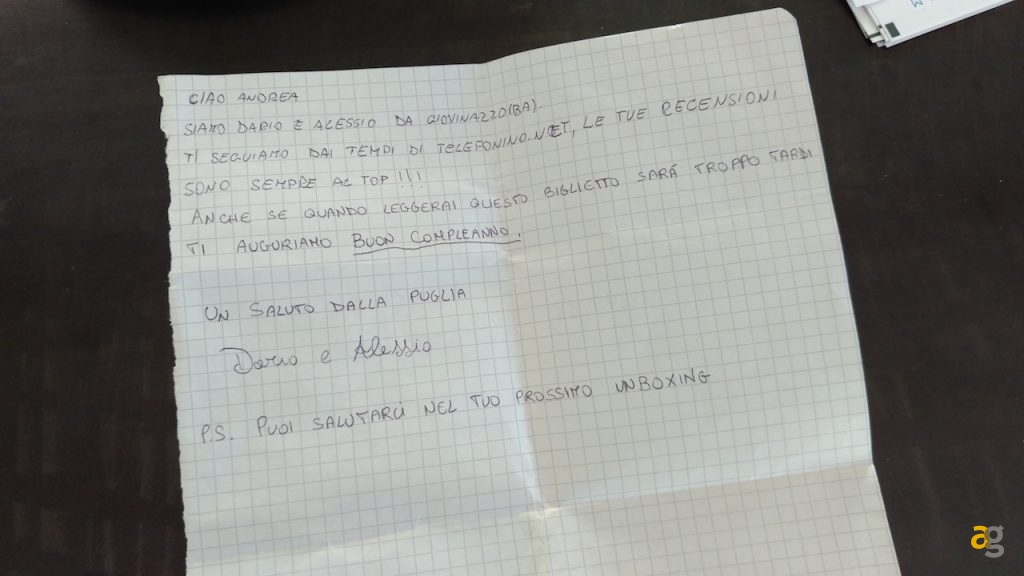 CIAO ANDREA
SIAMO DARIO E ALESSIO DA GIOVINAZZO (BA).
TI SEGUIAMO DAI TEMPI DI TELEFONINO.NET, LE TUE RECENSIONI
SONO SEMPRE AL TOP!!!
ANCHE SE QUANDO LEGGERAI QUESTO BIGLIETTO SARÁ TROPPO TARDI
TI AUGURIAMO BUON COMPLEANNO.
UN SALUTO DALLA PUGLIA
Dario e Alessio
P.S. PUOI SALUTARCI NEL TUO PROSSIMO UNBOXING
ag